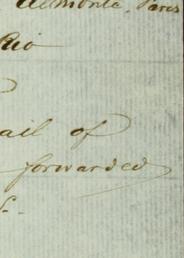 Almonte, Paris
Rio
ail of
forwarded